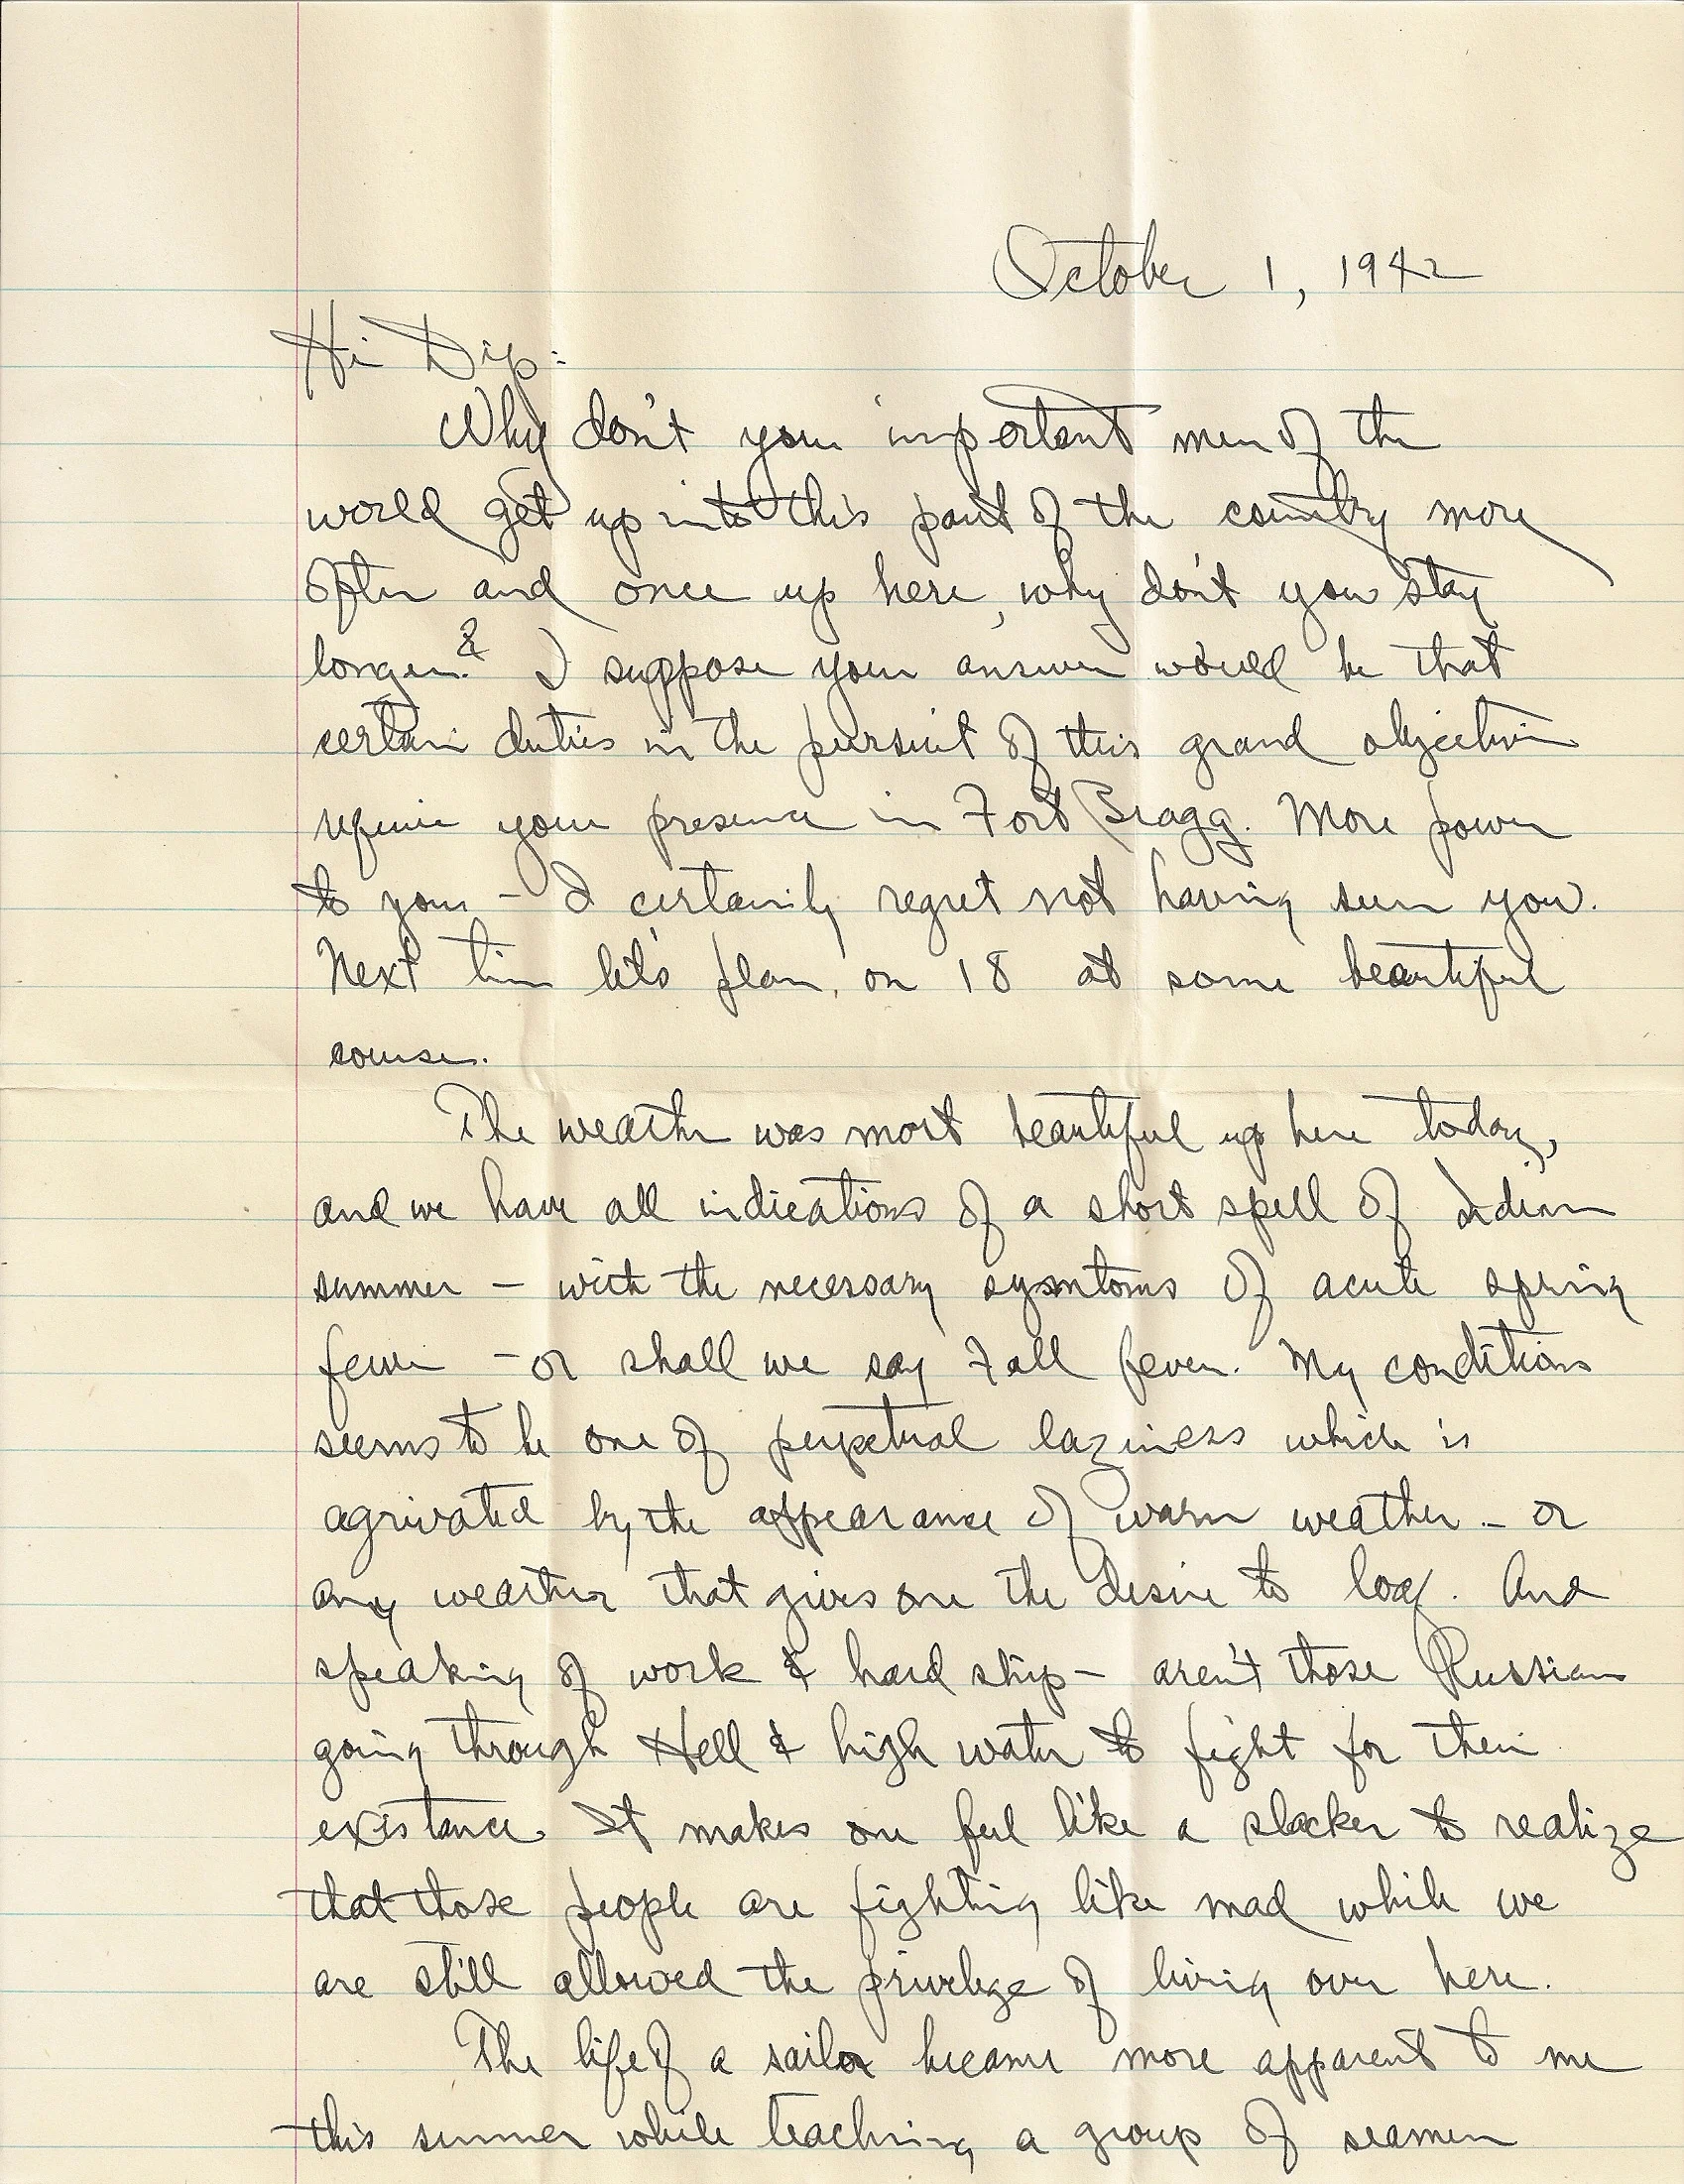 October 1, 1942
Hi Dip:
Why don't you important men of the
world get up into this part of the country more
often and once up here, why don't you stay
longer? I suppose your answer would be that
certain duties in the pursuit of this grand objective
require your presence in Fort Bragg. More power
to you - I certainly regret not having seen you.
Next time let's plan on 18 at some beautiful
course.
The weather was most beautiful up here today,
and we have all indications of a short spell of Indian
summer - with the necessary symntoms of acute spring
fever - or shall we say Fall fever. My conditions
seems to be one of perpetual laziness which is
agrivated by the appearance of warm weather - or
any weather that gives one the desire to loaf. And
speaking of work & hard ship - aren't those Russians
going through Hell & high water to fight for their
existance. It makes one feel like a slacker to realize
that those people are fighting like mad while we
are still allowed the privelege of living over here.
The life of a sailor became more apparent to me
this summer while teaching a group of seamen